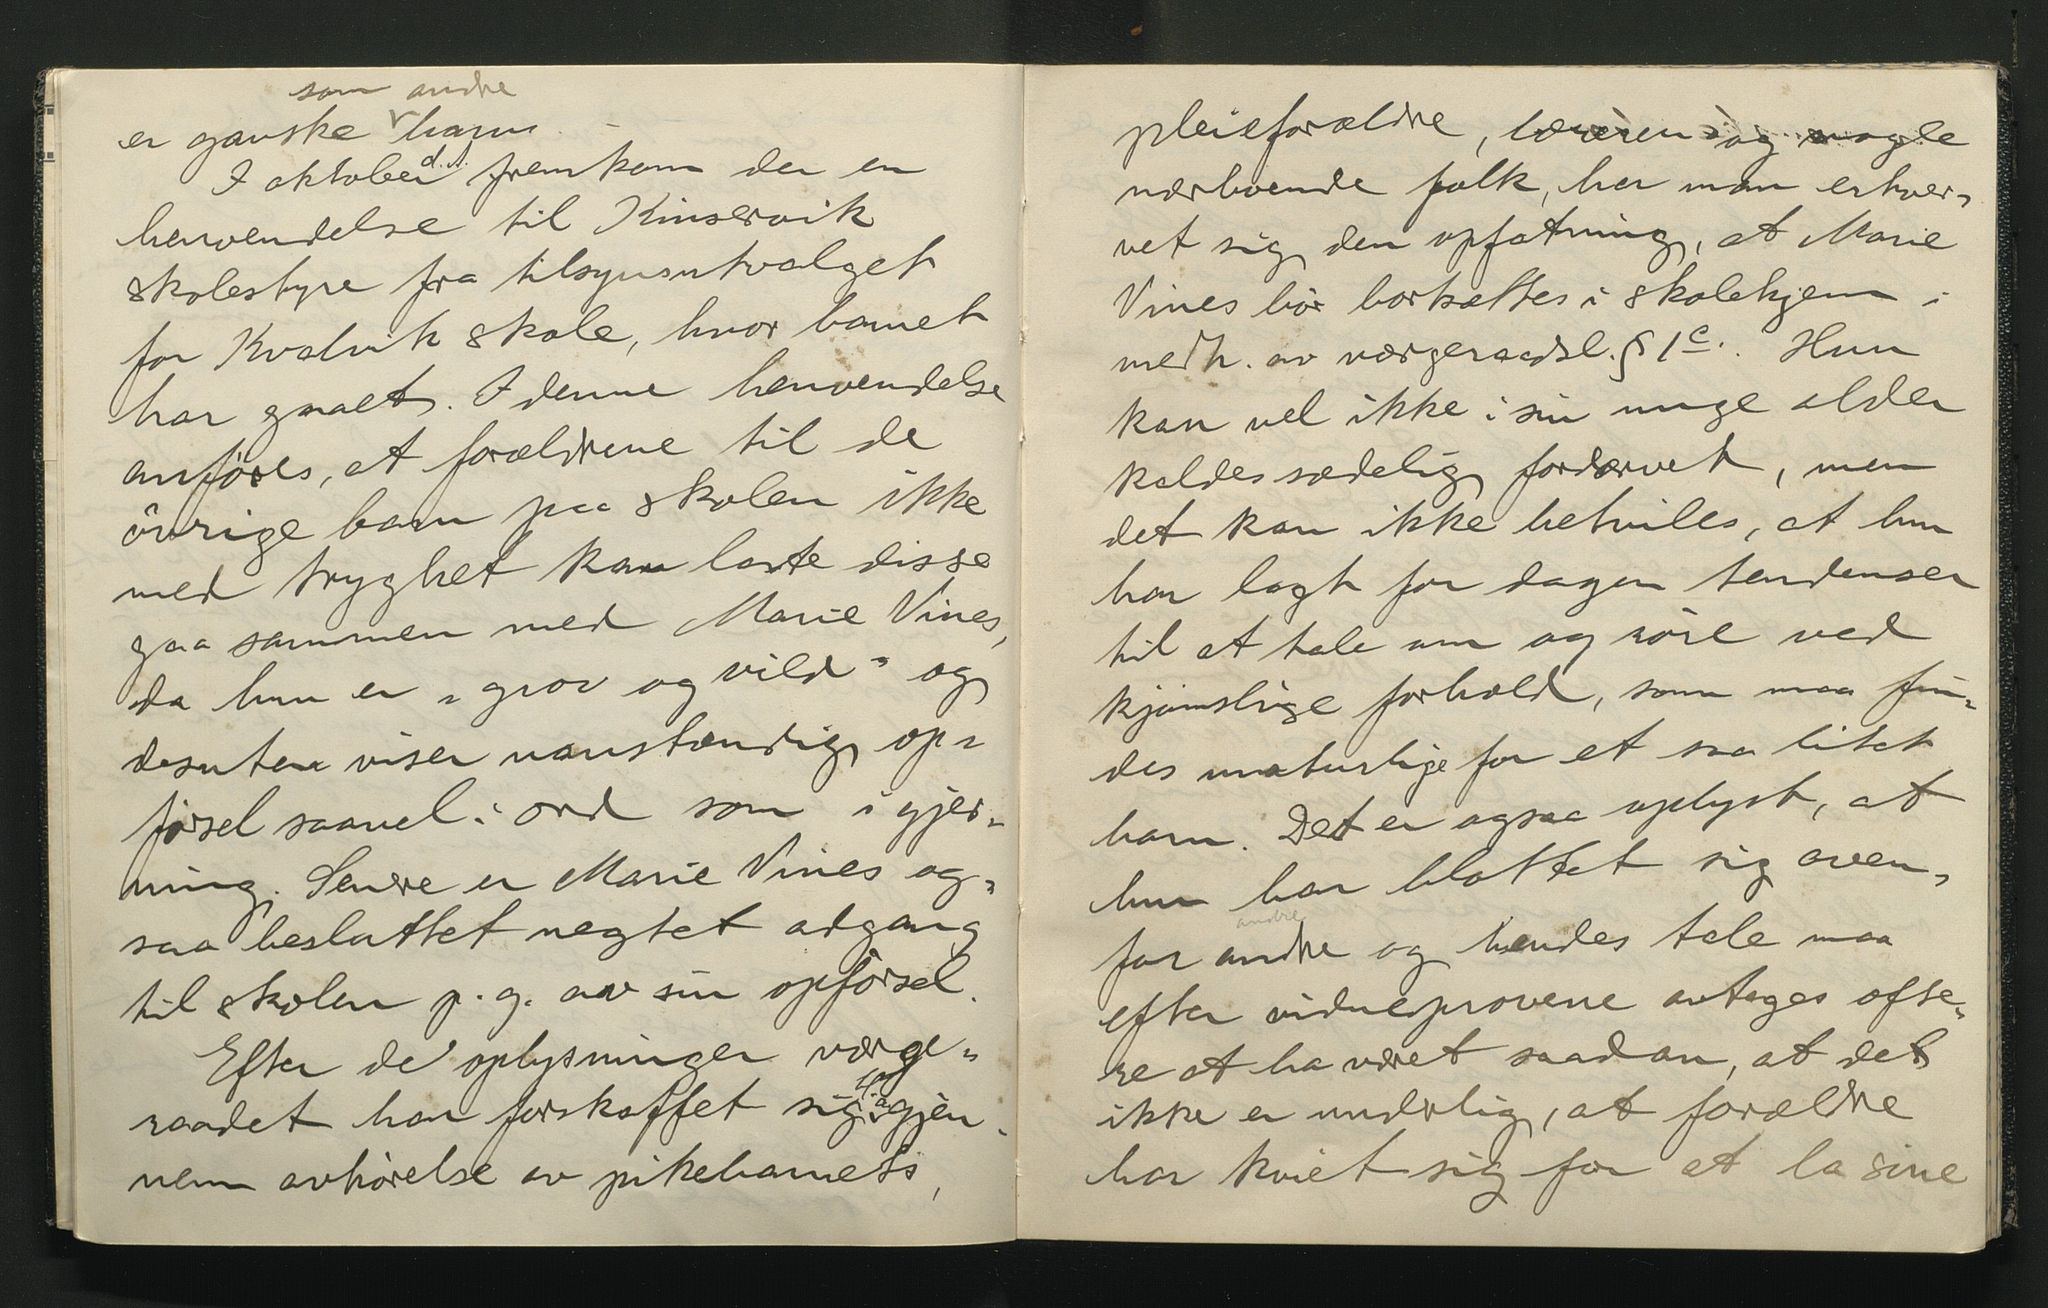 som andre
er ganske barn.
I oktober d. å. fremkom der en
henvendelse til Kinservik
skolestyre fra tilsynsutvalget
for Kvalvik skole, hvor barnet
har gaaet. I denne henvendelse
anföres, at forældrene til de
övrige barn paa skolen ikke
med tryghet kan late disse
gaa sammen med Marie Vines,
da hun er „grov og vild" og
desuten viser uanstændig op-
førsel saavel i ord som i gjer-
ning. Senere er Marie Vines og-
saa besluttet negtet adgang
til skolen p. g. av sin opförsel.
Efter de oplysninger værge-
raadet har forskaffet sig gjen-
nem avhörelse av pikebarnets,
pleieforældre, læreren og nogle
nærboende folk, har man erhver-
vet sig den opfatning, at Marie
Vines bör bortsættes i skolehjem i
medh. av værgeraadsl. § 1 c. Hun
kan vel ikke i sin unge alder
kaldes sædelig fordærvet, men
det kan ikke betviles, at hun
har lagt for dagen tendenser
til at tale om og röre ved
kjönslige forhold, som maa fin-
des unaturlige for et saa litet
barn. Det er ogsaa oplyst, at
hun har blottet sig oven-
andre
for andre og hendes tale maa
efter vidneprovene antages ofte-
re at ha været saadan, at det
ikke er underlig, at forældre
har kviet sig for at la sine